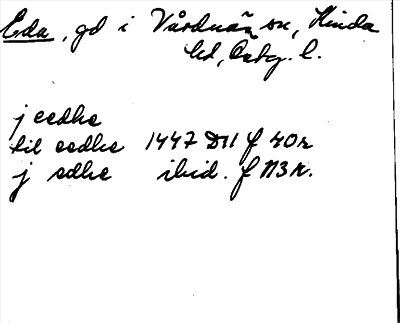 Eda, gd i Vårdnäs sn, Kinda
hd, Östg. l.
j eedhe
til eedhe 1447 D11 f 40r
j edhe ibid. f 113r.